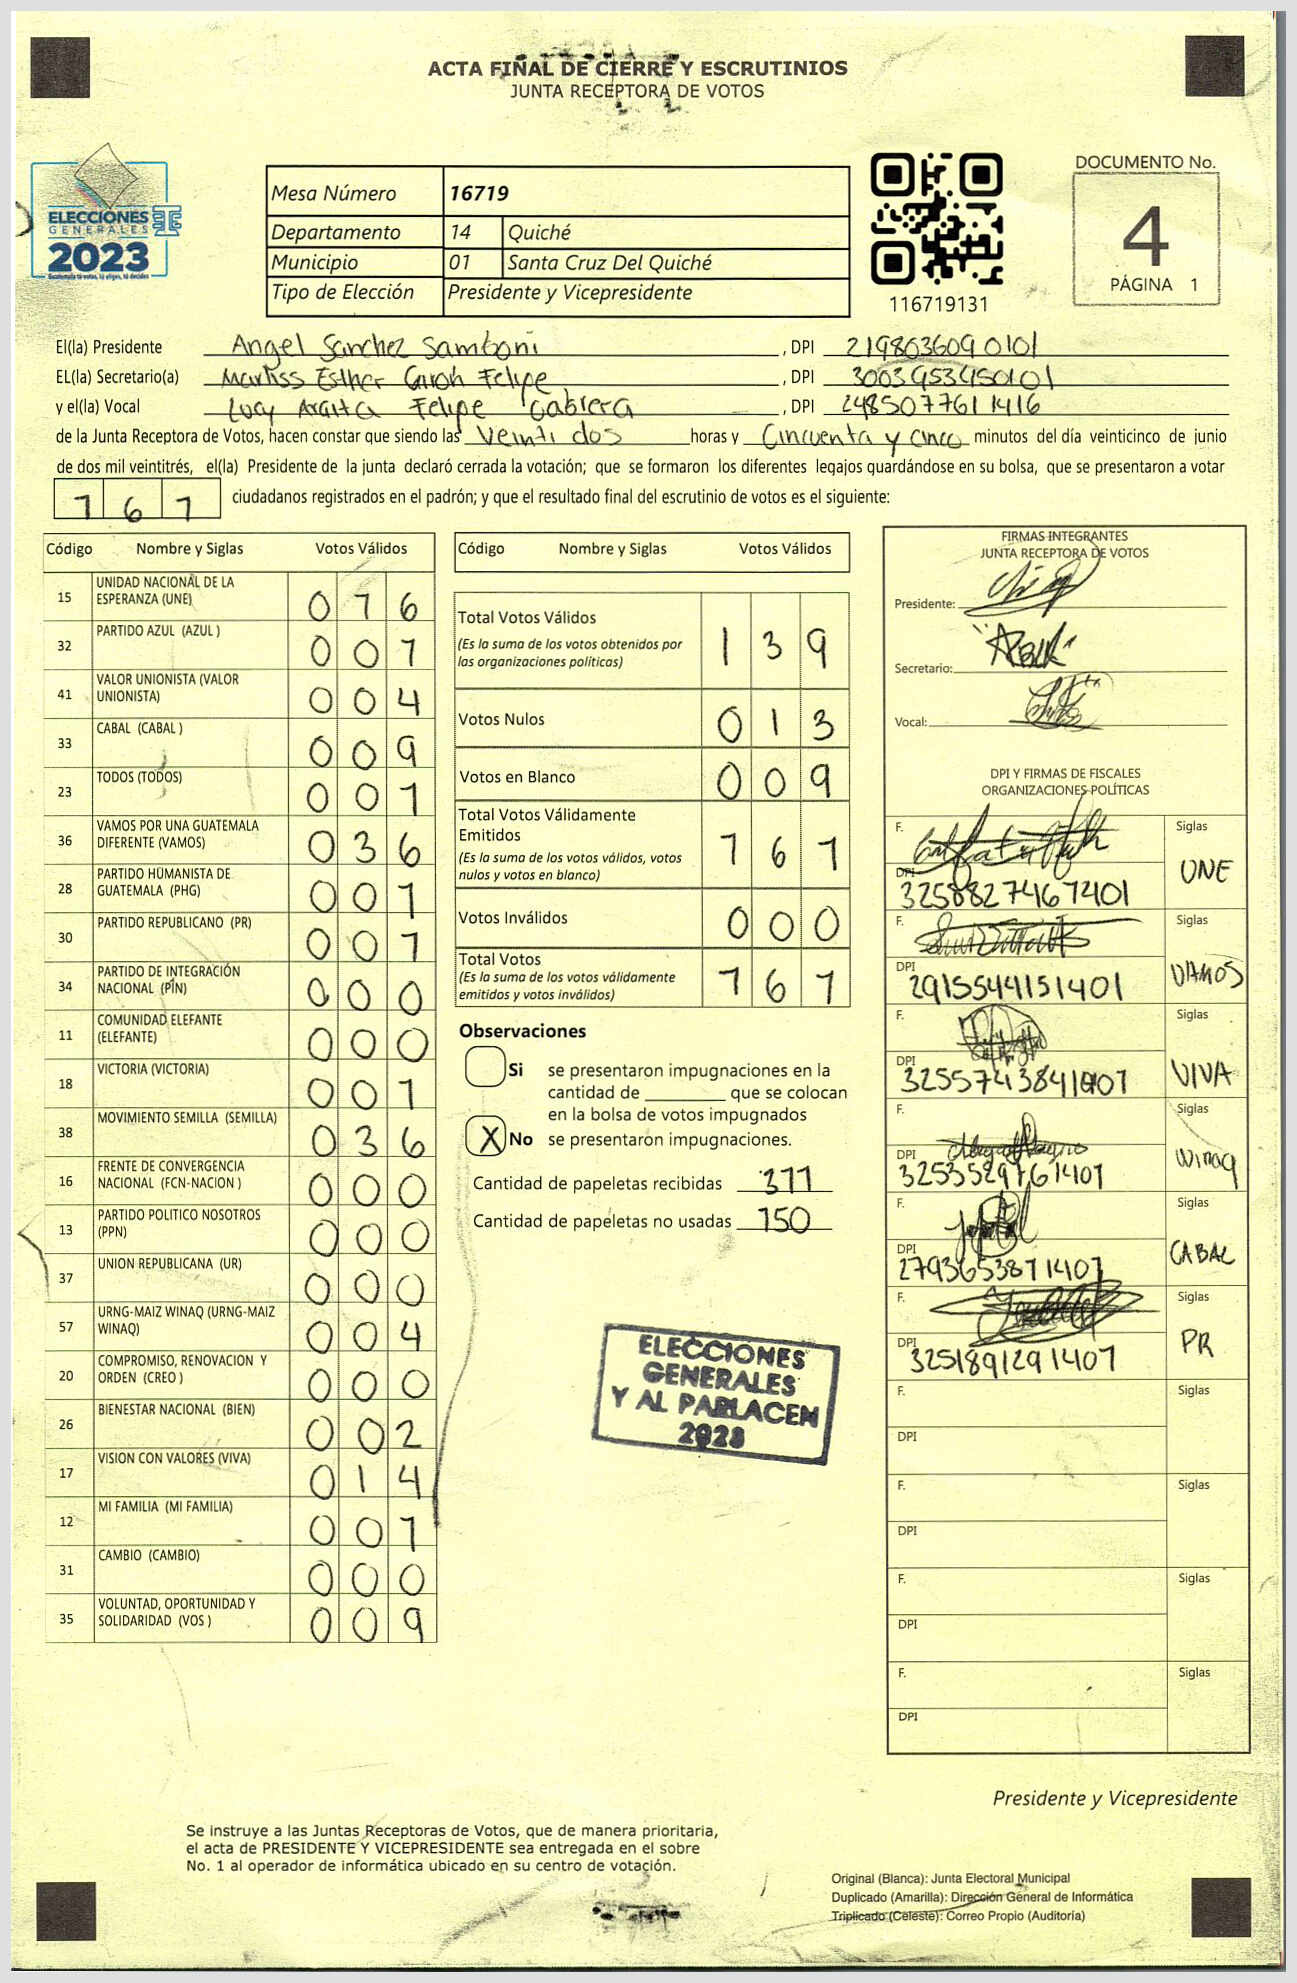 ACTA FINAL DE CIERRE Y ESCRUTINIOS
JUNTA RECEPTORA DE VOTOS
ELECCIONES
GENERALES
2023
Guatemala tú votas, tú eliges, tú decides
Mesa Número 16719
Departamento 14 Quiché
Municipio 01 Santa Cruz Del Quiché
Tipo de Elección Presidente y Vicepresidente
116719131
DOCUMENTO No.
4
PÁGINA 1
El(la) Presidente Angel Sanchez Samboni , DPI 2198036090101
EL(la) Secretario(a) Marliss Esther Girón Felipe , DPI 3003953450101
y el(la) Vocal Lucy Argita Felipe Cabrera , DPI 2485077611416
de la Junta Receptora de Votos, hacen constar que siendo las Veinti dos horas y Cincuenta y cinco minutos del día veinticinco de junio
de dos mil veintitrés, el(la) Presidente de la junta declaró cerrada la votación; que se formaron los diferentes legajos guardándose en su bolsa, que se presentaron a votar
161 ciudadanos registrados en el padrón; y que el resultado final del escrutinio de votos es el siguiente:
Código Nombre y Siglas Votos Válidos
15 UNIDAD NACIONAL DE LA ESPERANZA (UNE) 016
32 PARTIDO AZUL (AZUL ) 001
41 VALOR UNIONISTA (VALOR UNIONISTA) 004
33 CABAL (CABAL ) 009
23 TODOS (TODOS) 001
36 VAMOS POR UNA GUATEMALA DIFERENTE (VAMOS) 036
28 PARTIDO HUMANISTA DE GUATEMALA (PHG) 001
30 PARTIDO REPUBLICANO (PR) 001
34 PARTIDO DE INTEGRACIÓN NACIONAL (PIN) 000
11 COMUNIDAD ELEFANTE (ELEFANTE) 000
18 VICTORIA (VICTORIA) 001
38 MOVIMIENTO SEMILLA (SEMILLA) 036
16 FRENTE DE CONVERGENCIA NACIONAL (FCN-NACION ) 000
13 PARTIDO POLITICO NOSOTROS (PPN) 000
37 UNION REPUBLICANA (UR) 000
57 URNG-MAIZ WINAQ (URNG-MAIZ WINAQ) 004
20 COMPROMISO, RENOVACION Y ORDEN (CREO ) 000
26 BIENESTAR NACIONAL (BIEN) 002
17 VISION CON VALORES (VIVA) 014
12 MI FAMILIA (MI FAMILIA) 001
31 CAMBIO (CAMBIO) 000
35 VOLUNTAD, OPORTUNIDAD Y SOLIDARIDAD (VOS ) 009
Código Nombre y Siglas Votos Válidos
Total Votos Válidos 139
(Es la suma de los votos obtenidos por
las organizaciones políticas)
Votos Nulos 013
Votos en Blanco 009
Total Votos Válidamente
Emitidos 161
(Es la suma de los votos válidos, votos
nulos y votos en blanco)
Votos Inválidos 000
Total Votos 161
(Es la suma de los votos válidamente
emitidos y votos inválidos)
Observaciones
Si se presentaron impugnaciones en la
cantidad de ________ que se colocan
en la bolsa de votos impugnados
X No se presentaron impugnaciones.
Cantidad de papeletas recibidas 311
Cantidad de papeletas no usadas 150
ELECCIONES
GENERALES
Y AL PARLACEN
2023
FIRMAS INTEGRANTES
JUNTA RECEPTORA DE VOTOS
Presidente:
Secretario:
Vocal:
DPI Y FIRMAS DE FISCALES
ORGANIZACIONES POLÍTICAS
F. Siglas
DPI 3258827461401 UNE
F. Siglas
DPI 2915544151401 VAMOS
F. Siglas
DPI 3255743841401 VIVA
F. Siglas
DPI 3253529761401 Winaq
F. Siglas
DPI 2793653871401 CABAL
F. Siglas
DPI 3251891291401 PR
F. Siglas
DPI
F. Siglas
DPI
F. Siglas
DPI
F. Siglas
DPI
Presidente y Vicepresidente
Se instruye a las Juntas Receptoras de Votos, que de manera prioritaria,
el acta de PRESIDENTE Y VICEPRESIDENTE sea entregada en el sobre
No. 1 al operador de informática ubicado en su centro de votación.
Original (Blanca): Junta Electoral Municipal
Duplicado (Amarilla): Dirección General de Informática
Triplicado (Celeste): Correo Propio (Auditoría)